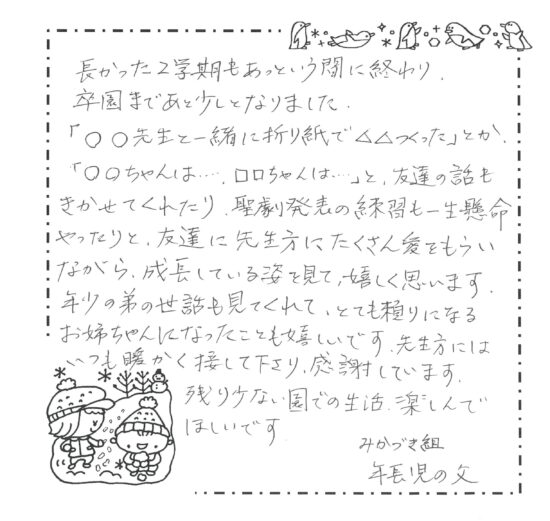 長かった2学期もあっという間に終わり、
卒園まであと少しとなりました。
「〇〇先生と一緒に折り紙で△△つくった」とか、
「〇〇ちゃんは…、ロロちゃんは…」と、友達の話も
きかせてくれたり、聖劇発表の練習も一生懸命
やったりと、友達に先生方にたくさん愛をもらい
ながら、成長している姿を見て、嬉しく思います。
年少の弟の世話も見てくれて、とても頼りになる
お姉ちゃんになったことも嬉しいです。先生方には
いつも暖かく接して下さり、感謝しています。
残り少ない園での生活、楽しんで
ほしいです。
みかづき組
年長児の父